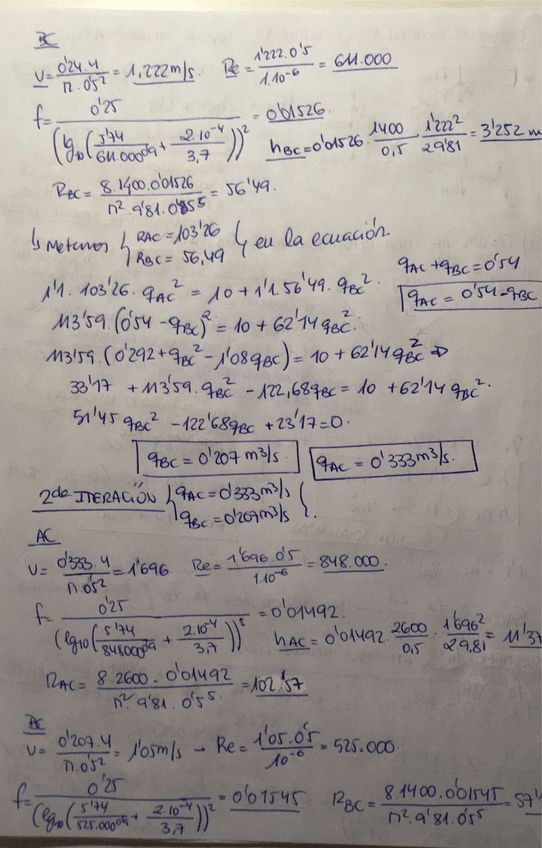 BC
V = 0'24.4 / π.0'5² = 1,222 m/s. Re = 1'222.0'5 / 1.10⁻⁶ = 611.000
f = 0'25 / (lg₁₀(5'74 / 611.000⁰'⁹ + 2.10⁻⁴ / 3,7))² = 0'01526. h_BC = 0'01526 . 1400 / 0,5 . 1'222² / 2.9'81 = 3'252 m
R_BC = 8.1400.0'01526 / π².9'81.0'5⁵ = 56'49.
↳ Metemos { R_AC = 103'26 R_BC = 56,49 } en la ecuación.
q_AC + q_BC = 0'54
1'1. 103'26. q_AC² = 10 + 1'1. 56'49. q_BC². q_AC = 0'54 - q_BC
113'59.(0'54 - q_BC)² = 10 + 62'14 q_BC².
113'59.(0'292 + q_BC² - 1'08 q_BC) = 10 + 62'14 q_BC² ⇒
33'17 + 113'59. q_BC² - 122,68 q_BC = 10 + 62'14 q_BC².
51'45 q_BC² - 122'68 q_BC + 23'17 = 0.
q_BC = 0'207 m³/s q_AC = 0'333 m³/s.
2da ITERACIÓN { q_AC = 0'333 m³/s q_BC = 0'207 m³/s } .
AC
V = 0'333.4 / π.0'5² = 1'696 Re = 1'696.0'5 / 1.10⁻⁶ = 848.000.
f = 0'25 / (lg₁₀(5'74 / 848000⁰'⁹ + 2.10⁻⁴ / 3,7))² = 0'01492. h_AC = 0'01492. 2600 / 0.5 . 1'696² / 2.9.81 = 11'37
R_AC = 8.2600.0'01492 / π².9'81.0'5⁵ = 102'57
BC
V = 0'207.4 / π.0'5² = 1'05 m/s → Re = 1'05.0'5 / 10⁻⁶ = 525.000.
f = 0'25 / (lg₁₀(5'74 / 525.000⁰'⁹ + 2.10⁻⁴ / 3,7))² = 0'01545 R_BC = 8.1400.0'01545 / π².9'81.0'5⁵ = 57'